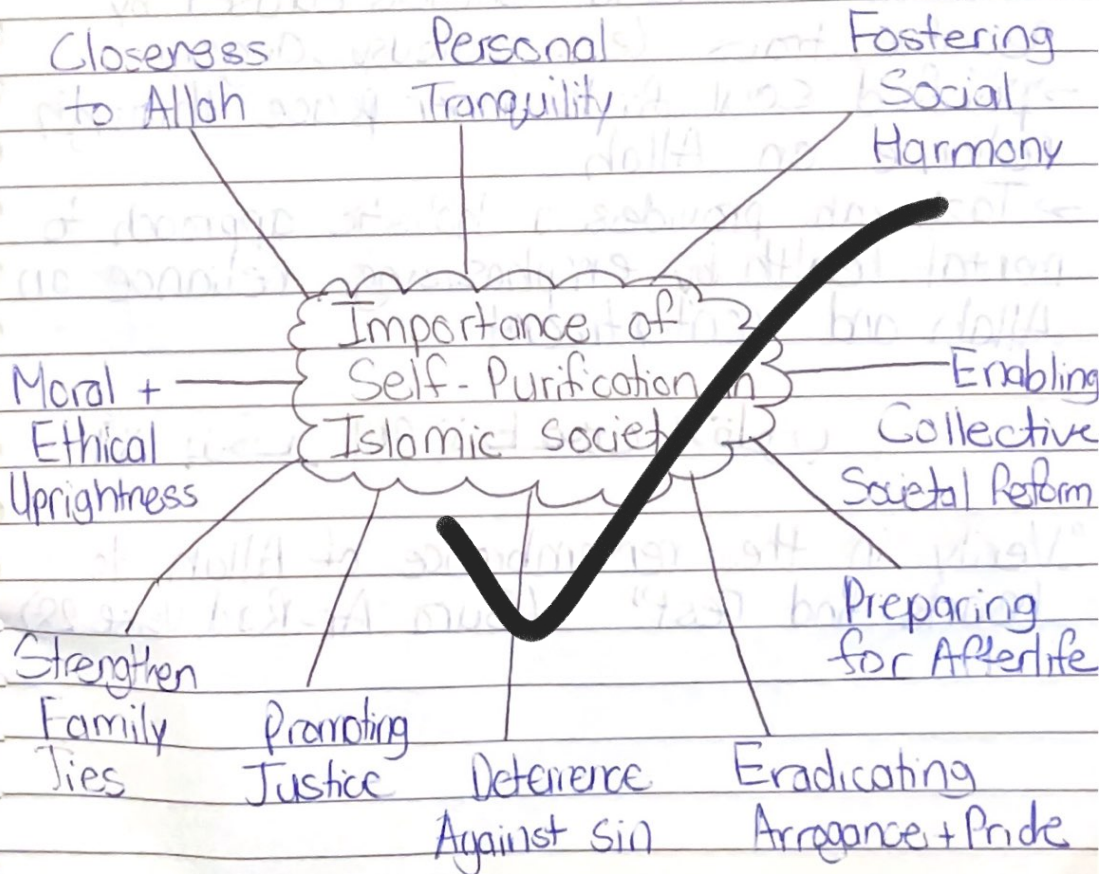 Closeness
to Allah
Personal
Tranquility
Fostering
Social
Harmony
Importance of
Self-Purification in
Islamic Society
Moral +
Ethical
Uprightness
Enabling
Collective
Societal Reform
Preparing
for Afterlife
Strengthen
Family
Ties
Promoting
Justice
Deterrence
Against Sin
Eradicating
Arrogance + Pride